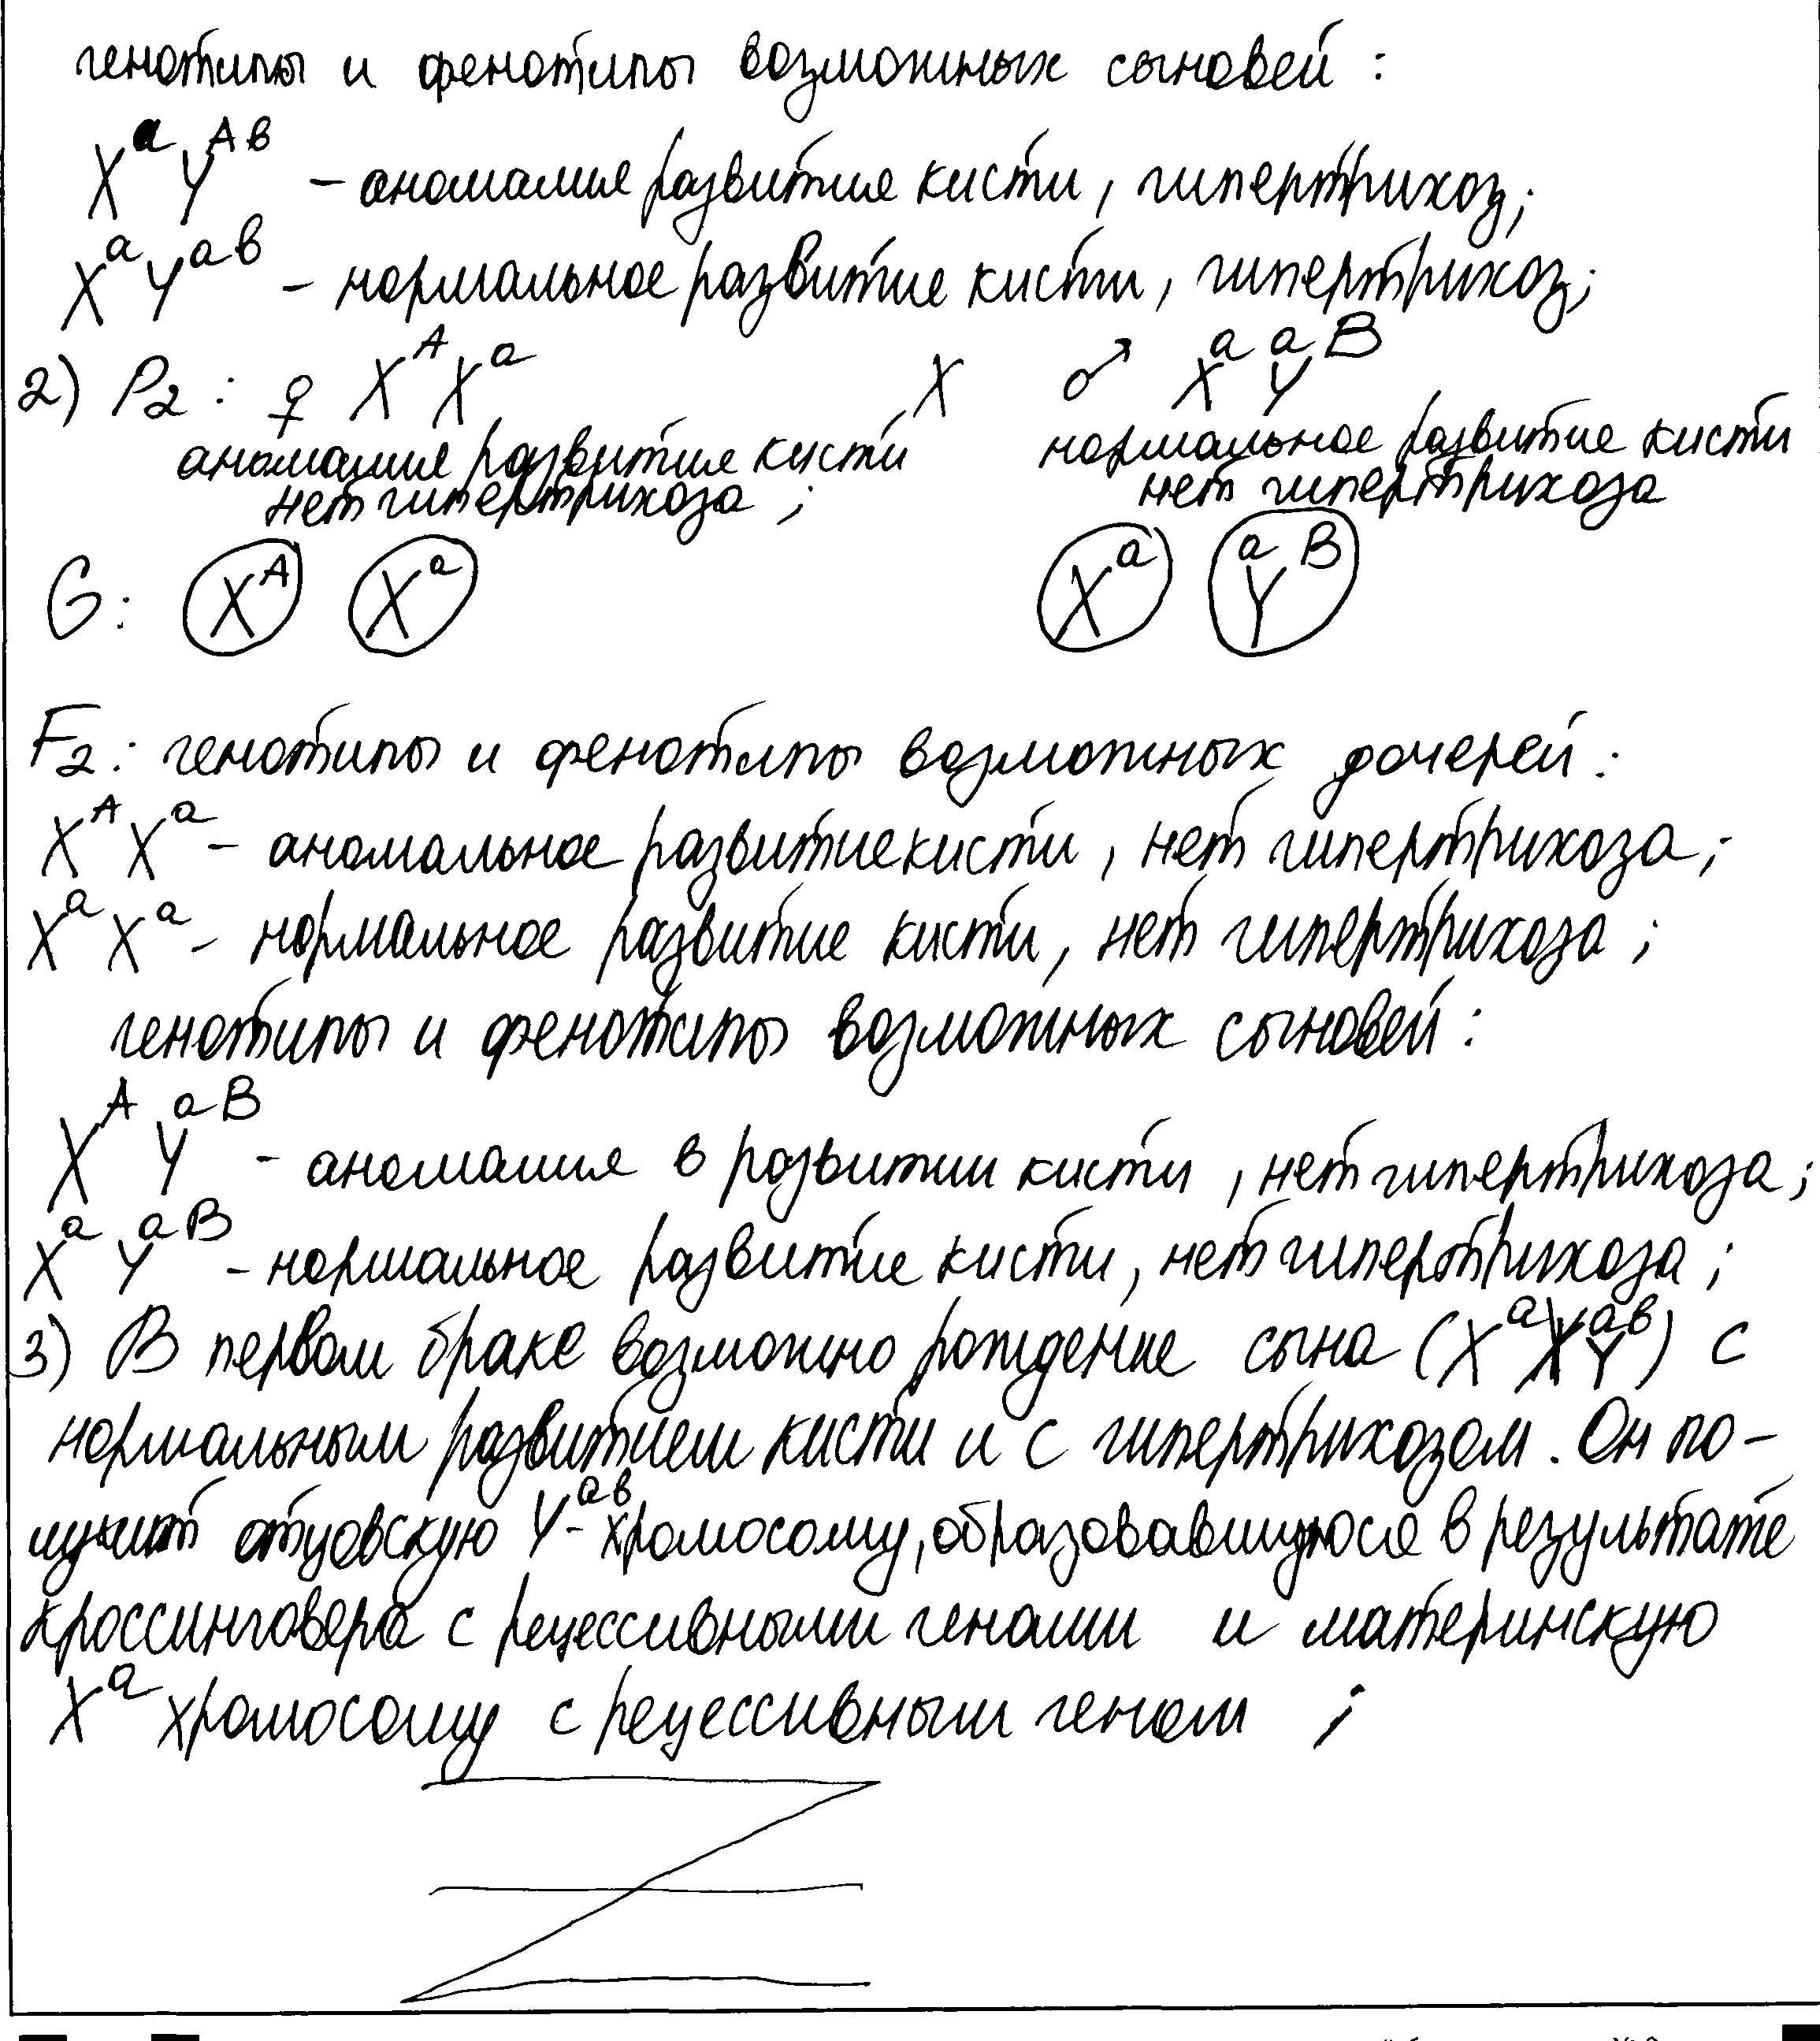 генотипы и фенотипы возможных сыновей :
XᵃYᴬᵇ – аномалия развития кисти, гипертрихоз;
XᵃYᵃᵇ – нормальное развитие кисти, гипертрихоз;
2) P₂ : ♀ XᴬXᵃ X ♂ XᵃYᵃᴮ
аномалия развития кисти нормальное развитие кисти
нет гипертрихоза ; нет гипертрихоза
G : Xᴬ Xᵃ Xᵃ Yᵃᴮ
F₂ : генотипы и фенотипы возможных дочерей :
XᴬXᵃ – аномальное развитие кисти, нет гипертрихоза;
XᵃXᵃ – нормальное развитие кисти, нет гипертрихоза ;
генотипы и фенотипы возможных сыновей :
XᴬYᵃᴮ – аномалия в развитии кисти, нет гипертрихоза;
XᵃYᵃᴮ – нормальное развитие кисти, нет гипертрихоза ;
3) В первом браке возможно рождение сына (XᵃYᵃᵇ) с
нормальным развитием кисти и с гипертрихозом. Он по-
лучит отцовскую Yᵃᵇ-хромосому, образовавшуюся в результате
кроссинговера с рецессивными генами и материнскую
Xᵃ хромосому с рецессивным геном ;